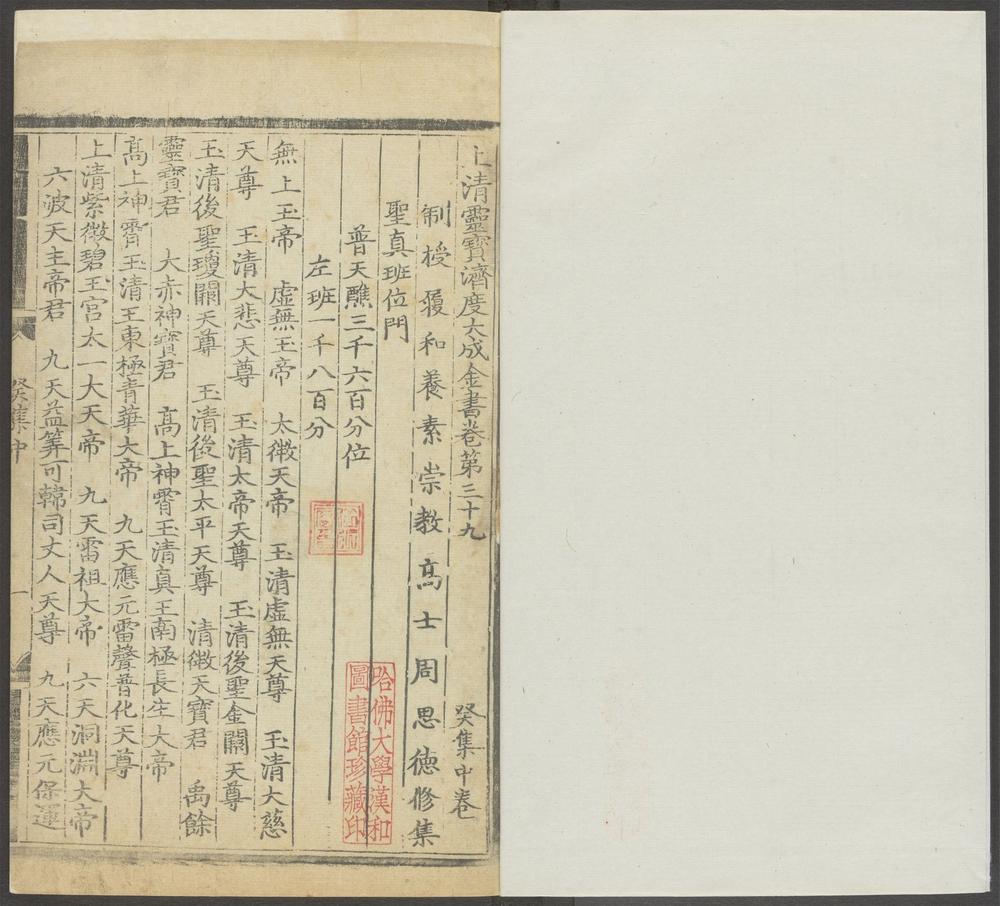 上清靈寶濟度大成金書卷第三十九 癸集中卷
制授履和養素崇教高士周思德修集
聖真班位門
普天醮三千六百分位
左班一千八百分
無上玉帝 虛無玉帝 太微天帝 玉清虛無天尊 玉清大慈
天尊 玉清大悲天尊 玉清太帝天尊 玉清後聖金闕天尊
玉清後聖瓊闕天尊 玉清後聖太平天尊 清微天寶君 禹餘
靈寶君 大赤神寶君 高上神霄玉清真王南極長生大帝
高上神霄玉清王東極青華大帝 九天應元雷聲普化天尊
上清紫微碧玉宮太一大天帝 九天雷祖大帝 六天洞淵大帝
六波天主帝君 九天益筭可韓司丈人天尊 九天應元保運
癸集中
一
哈佛大學漢和
圖書館珍藏印